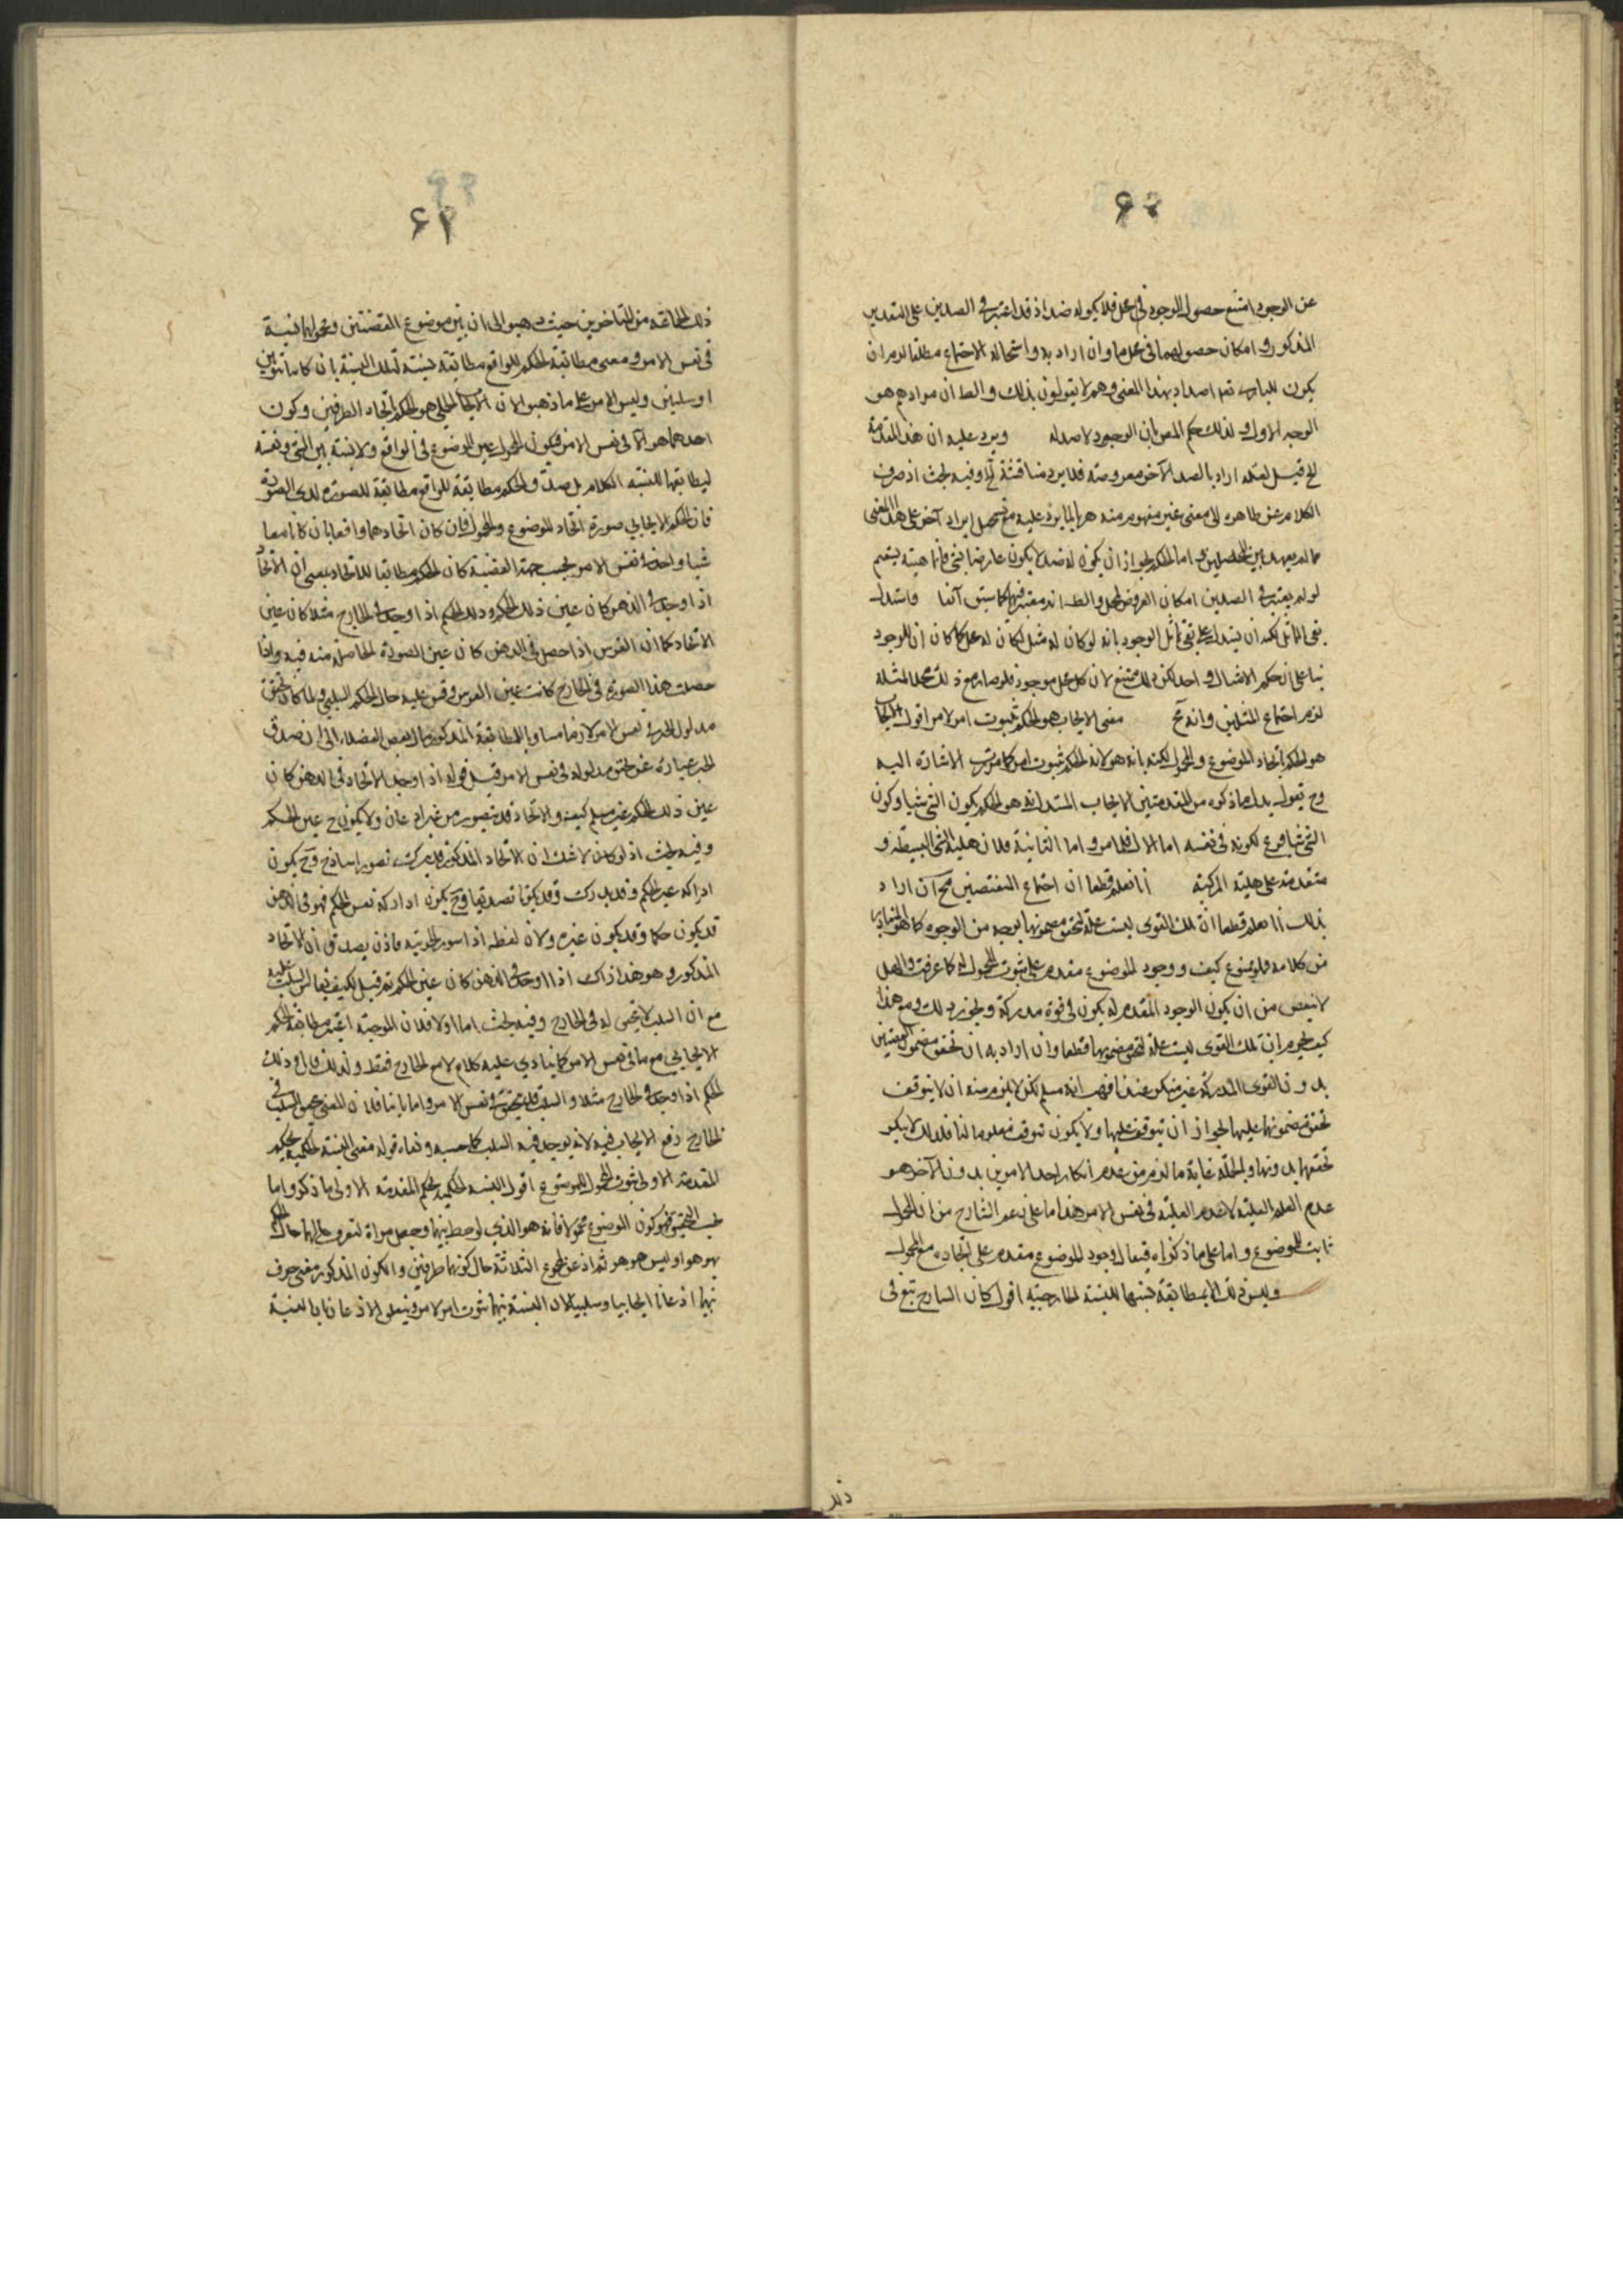 ۶۰
عن الوجود امتنع حصول الوجود في محل فلا يكون له ضد اذ قد اعتبر في الضدين على التقدير
المذكور امكان حصولهما في محل ما وان اراد به واستحالة الاجتماع مطلقا لزم ان
يكون للباري تعم اضداد بهذا المعنى وهم لا يقولون بذلك والظ ان مرادهم هو
الوجه الاول ولذلك حكم المص بان الوجود لا ضد له ويرد عليه ان هذه المقدمة
قيل لعله اراد بالضد الآخر معروضه فلا يرد مناقشة وفيه بحث اذ صرف
الكلام عن ظاهره الى معنى غير مفهوم منه هربا لما يرد عليه مع ايراد آخر على هذا المعنى
مما لم يعهد بين المحصلين واما الحكم بجواز ان يكون له ضد لا يكون عارضا لشئ فانما يستقيم
لو لم يعتبر في الضدين امكان العروض لمحل والظ انه معتبر فيهما كما سبق آنفا واستدل
بقى التماثل يمكن ان يستدل على نفى تماثل الوجود بانه لو كان له مثل لكان له محل كما كان ان للوجود
بناء على ان حكم الامثال واحد لكن ذلك ممتنع لان كل محل موجود فلو صار مع ذلك محلا لمثله
لزم اجتماع المثلين وانه مح معنى الايجاب هو الحكم بثبوت امر لامر اقول الايجاب
هو الحكم باتحاد الموضوع والمحمول لكنه بانه هو لانه الحكم بثبوت امر كما مرت الاشارة اليه
وح نقول بدل ما ذكره من المقدمتين الايجاب المستدل انه هو الحكم بكون الشئ شيا وكون
الشئ شيا فرع لكونه في نفسه اما الاول فلما مر واما الثانية فلان هلية الشئ البسيطة
متقدمة على هليته المركبة انا نعلم قطعا ان اجتماع النقيضين مح ان اراد
بذلك انا نعلم قطعا ان تلك القوى ليست علة لتحقق مضمونها بوجه من الوجوه كما هو المتبادر
من كلامه فلو ممنوع كيف ووجود الموضوع مقدم على ثبوت المحمول له كما عرفت
لا ينقص من ان يكون الوجود المقدم له يكون في قوة مدركة وبجوز ذلك ومع هذا
كيف يجزم ان تلك القوى ليست علة لتحقق مضمونها قطعا وان اراد به ان تحقق مضمون القضيتين
بدون القوى المدركة غير منكر عندنا فهب انه مسلم لكن لا يلزم منه ان لا يتوقف
تحقق مضمونها عليها لجواز ان يتوقف عليها ولا يكون توقفه معلوما لنا فلذلك لا ينكر
تحققها بدونها وبالجملة غاية ما لزم من عدم انكار احد الامرين بدون الآخر هو
عدم العلم بالعلية لا عدم العلية في نفس الامر هذا ما على زعم الشارح من ان المحمول
ثابت للموضوع واما على ما ذكرناه فيقال وجود الموضوع مقدم على اتحاده مع المحمول
وليس ذلك الا بمطابقة نسبتها للنسبة الخارجية اقول كان الشارح تبع في
ذلك
۶۱
ذلك لجماعة من المتأخرين حيث ذهبوا الى ان بين موضوع القضيتين ومحمولها نسبة
في نفس الامر ومعنى مطابقة الحكم للواقع مطابقة نسبته لتلك النسبة بان كانتا ثبوتيتين
او سلبيتين وليس الامر على ما ذهبوا لان الايجاب الحملي هو الحكم باتحاد الطرفين وكون
احدهما هو الآخر في نفس الامر فيكون المحمول عين الموضوع في الواقع ولا نسبة بين الشئ ونفسه
ليطابقها النسبة الكلام بل صدق الحكم مطابقة للواقع مطابقة للصورة لذي الصورة
فان الحكم الايجابي صورة اتحاد الموضوع والمحمول فان كان اتحادهما واقعا بان كانا معا
شيا واحدا في نفس الامر بحسب جهة القضية كان الحكم مطابقا للاتحاد بمعنى ان الاتحاد
اذا وجد في الذهن كان عين ذلك الحكم وذلك الحكم اذا وجد في الخارج مثلا كان عين
الاتحاد كما ان الفرس اذا حصل في الذهن كان عين الصورة الحاصلة منه فيه واذا
حصلت هذه الصورة في الخارج كانت عين الفرس وقس عليه حال الحكم السلبي ولما كان تحقق
مدلول الخبر في نفس الامر لازما مساويا للمطابقة المذكورة مال بعض الفضلاء الى ان صدق
الخبر عبارة عن تحقق مدلوله في نفس الامر قيل قوله اذا وجد الاتحاد في الذهن كان
عين ذلك الحكم غير مسلم كيف والاتحاد قد يتصور من غير اذعان ولا يكون ح عين الحكم
وفيه بحث اذ لو كان لا شك ان الاتحاد المذكور قد يدرك تصورا ساذجا وح يكون
ادراكه غير الحكم وقد يدرك تصديقا وح يكون ادراكه نفس الحكم فهو في الذهن
قد يكون حكما وقد يكون غيره ولان لفظه اذا سور الجزئية فاذن يصدق ان الاتحاد
المذكور هو هذا ذاك اذا وجد في الذهن كان عين الحكم ثم قيل كيف يقاس السلب عليه
مع ان السلب لا تحقق له في الخارج وفيه بحث اما اولا فلان الموجبة اعتبر مطابقة الحكم
الايجابي مع ما في نفس الامر كما ينادي عليه كلامه لا مع الخارج فقط ولذلك قال وذلك
الحكم اذا وجد في الخارج مثلا والسلب قد يتحقق في نفس الامر واما ثانيا فلان المعنى بتحقق السلب في
الخارج رفع الايجاب فيه لانه يوجد فيه السلب كما حسبه قوله معنى النسبة الحكمية بحكم
المقدمة الاولى ثبوت المحمول للموضوع اقول النسبة الحكمية بحكم المقدمة الاولى ما ذكره واما
بحسب التحقيق فهو كون الموضوع محمولا فانه هو الذي لوحظ بينهما وجعل مرآة لتعرف حالهما
بهو هو او ليس هو هو ثم اذعن المجموع الثلاثة حال كونهما طرفين والكون المذكور معنى حرفي
بينهما اذعانا ايجابيا وسلبيا لا ان النسبة بينهما ثبوت امر لامر ويتعلق الاذعان بالنسبة